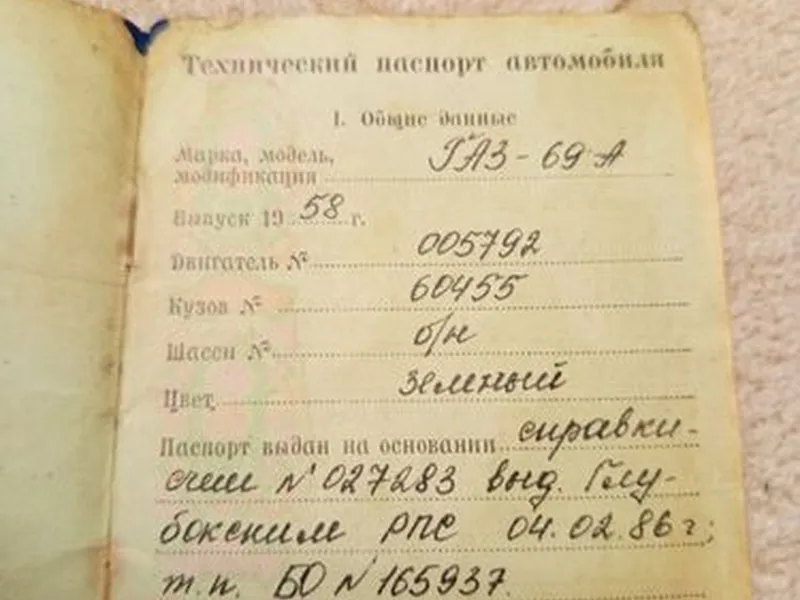 Технический паспорт автомобиля
1. Общие данные
Марка, модель,
модификация ГАЗ-69-А
Выпуск 19 58 г.
Двигатель № 005792
Кузов № 60455
Шасси № б/н
Цвет зеленый
Паспорт выдан на основании справки-
счет № 027283 выд. Глу-
бокским РПС 04.02.86 г;
т.п. БО № 165937.